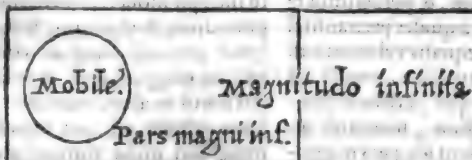 Mobile. Magnitudo infinita
Pars magni inf.